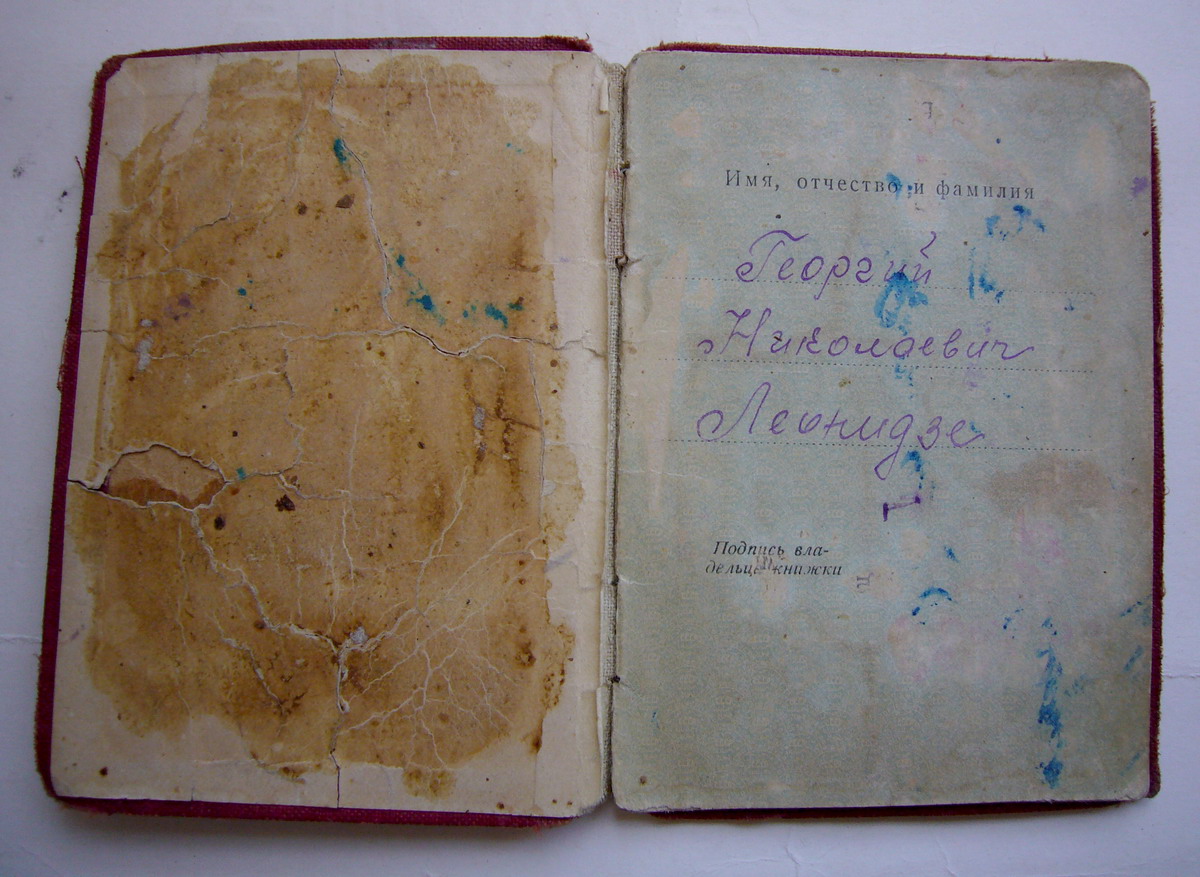 Имя, отчество и фамилия
Георгий
Николаевич
Леонидзе
Подпись вла-
дельца книжки